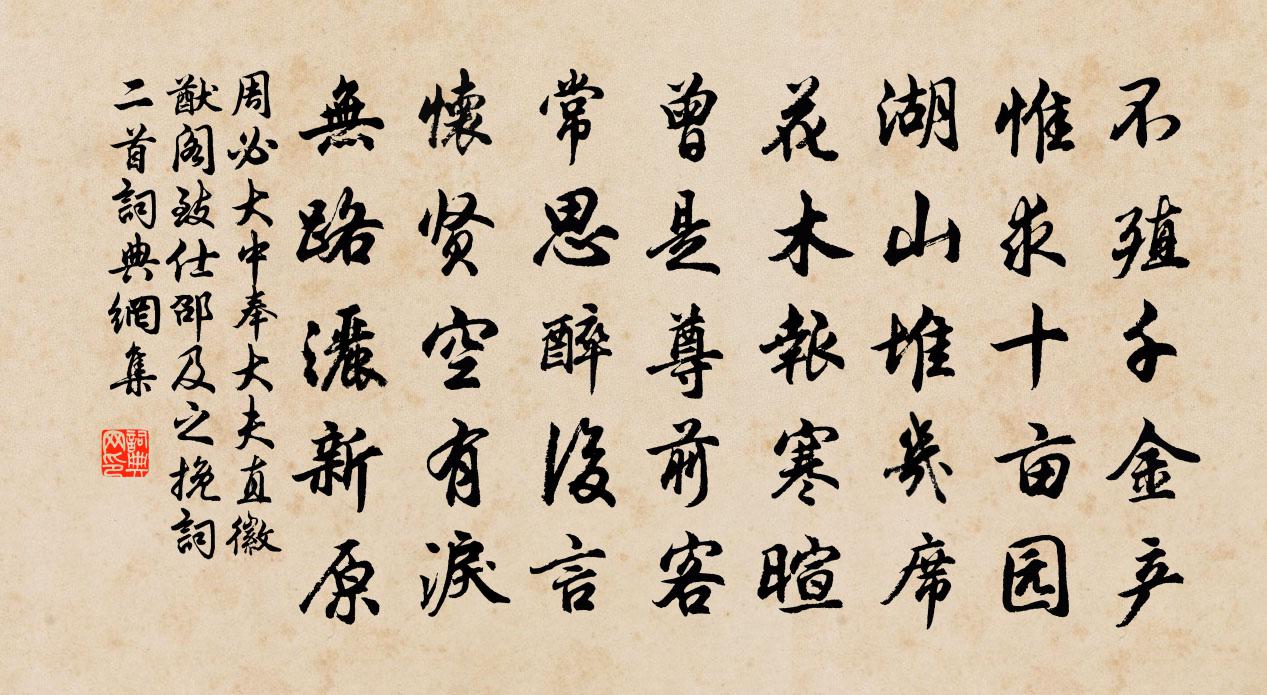 不殖千金产
惟求十亩园
湖山堆几席
花木報寒暄
曾是尊前客
常思醉後言
懷贤空有淚
無路灑新原
周必大中奉大夫直徽
猷阁致仕邵及之挽詞
二首詞典網集
詞典
网印